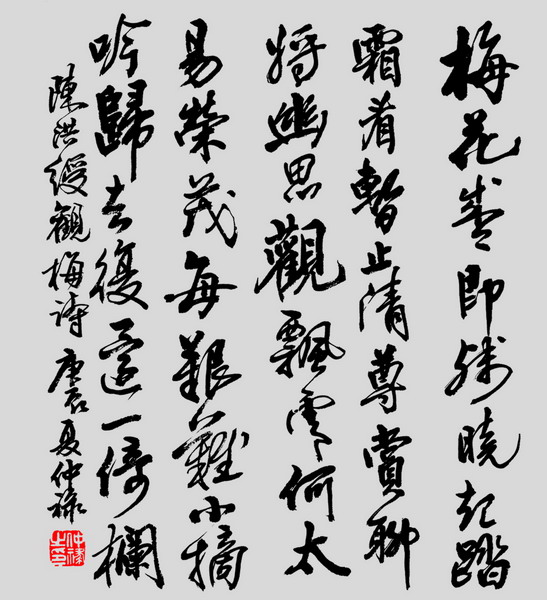 梅花盛即殘晓起踏
霜看暫止清尊賞聊
將幽思觀飄零何太
易榮茂每艱難小摘
吟歸去復還一倚欄
陳洪綬觀梅詩 庚辰夏仲祿
仲祿之印